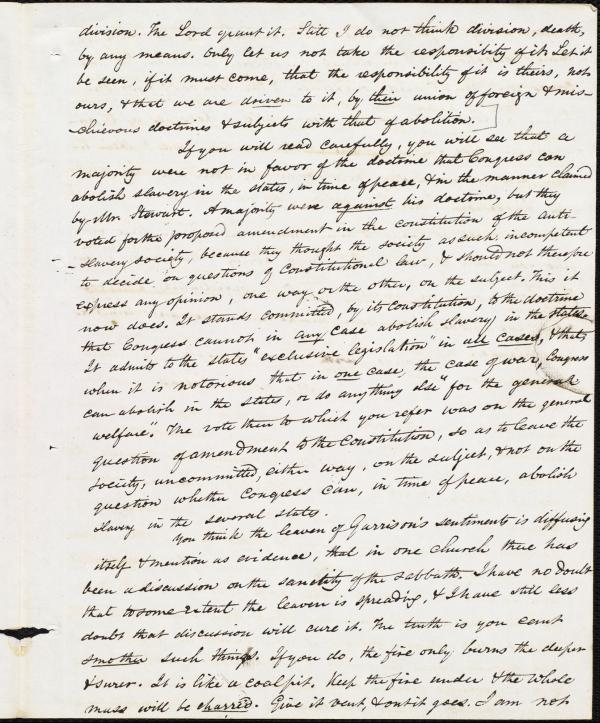 division. The Lord grant it. Still I do not think division, death,
by any means. Only let us not take the responsibity of it. Let it
be seen, if it must come, that the responsibility of it is theirs, not
ours, & that we are driven to it, by their union of foreign & mis-
chievous doctrines & subjects with that of abolition.
If you will read carefully, you will see that a
majority were not in favor of the doctrine that Congress can
abolish slavery in the states, in time of peace, & in the manner claimed
by Mr. Stewart. A majority were against his doctrine, but they
voted for the proposed amendment in the constitution of the Anti-
slavery society, because they thought the society as such, incompetent
to decide on questions of Constitutional law, & should not therefore
express any opinion, one way or the other, on the subject. This it
now does. It stands committed, by its constitution, to the doctrine
that Congress cannot in any case abolish slavery in the states.
It admits to the states "exclusive legislation" in all cases, & that,
when it is notorious that in one case, the case of war, Congress
can abolish in the states, or do anything else "for the general
welfare". The vote then to which you refer was on the general
question of amendment to the Constitution, so as to leave the
society, uncommitted, either way, on the subject, & not on the
question whether Congress can, in time of peace, abolish
slavery in the several states.
You think the leaven of Garrison's sentiments is diffusing
itself & mention as evidence, that in one church there has
been a discussion on the sanctity of the sabbath. I have no doubt
that to some extent the leaven is spreading, & I have still less
doubt that discussion will cure it. The truth is you cant
smother such things. If you do, the fire only burns the deeper
& surer. It is like a coalpit. Keep the fire under & the whole
mass will be charred. Give it vent & out it goes. I am not